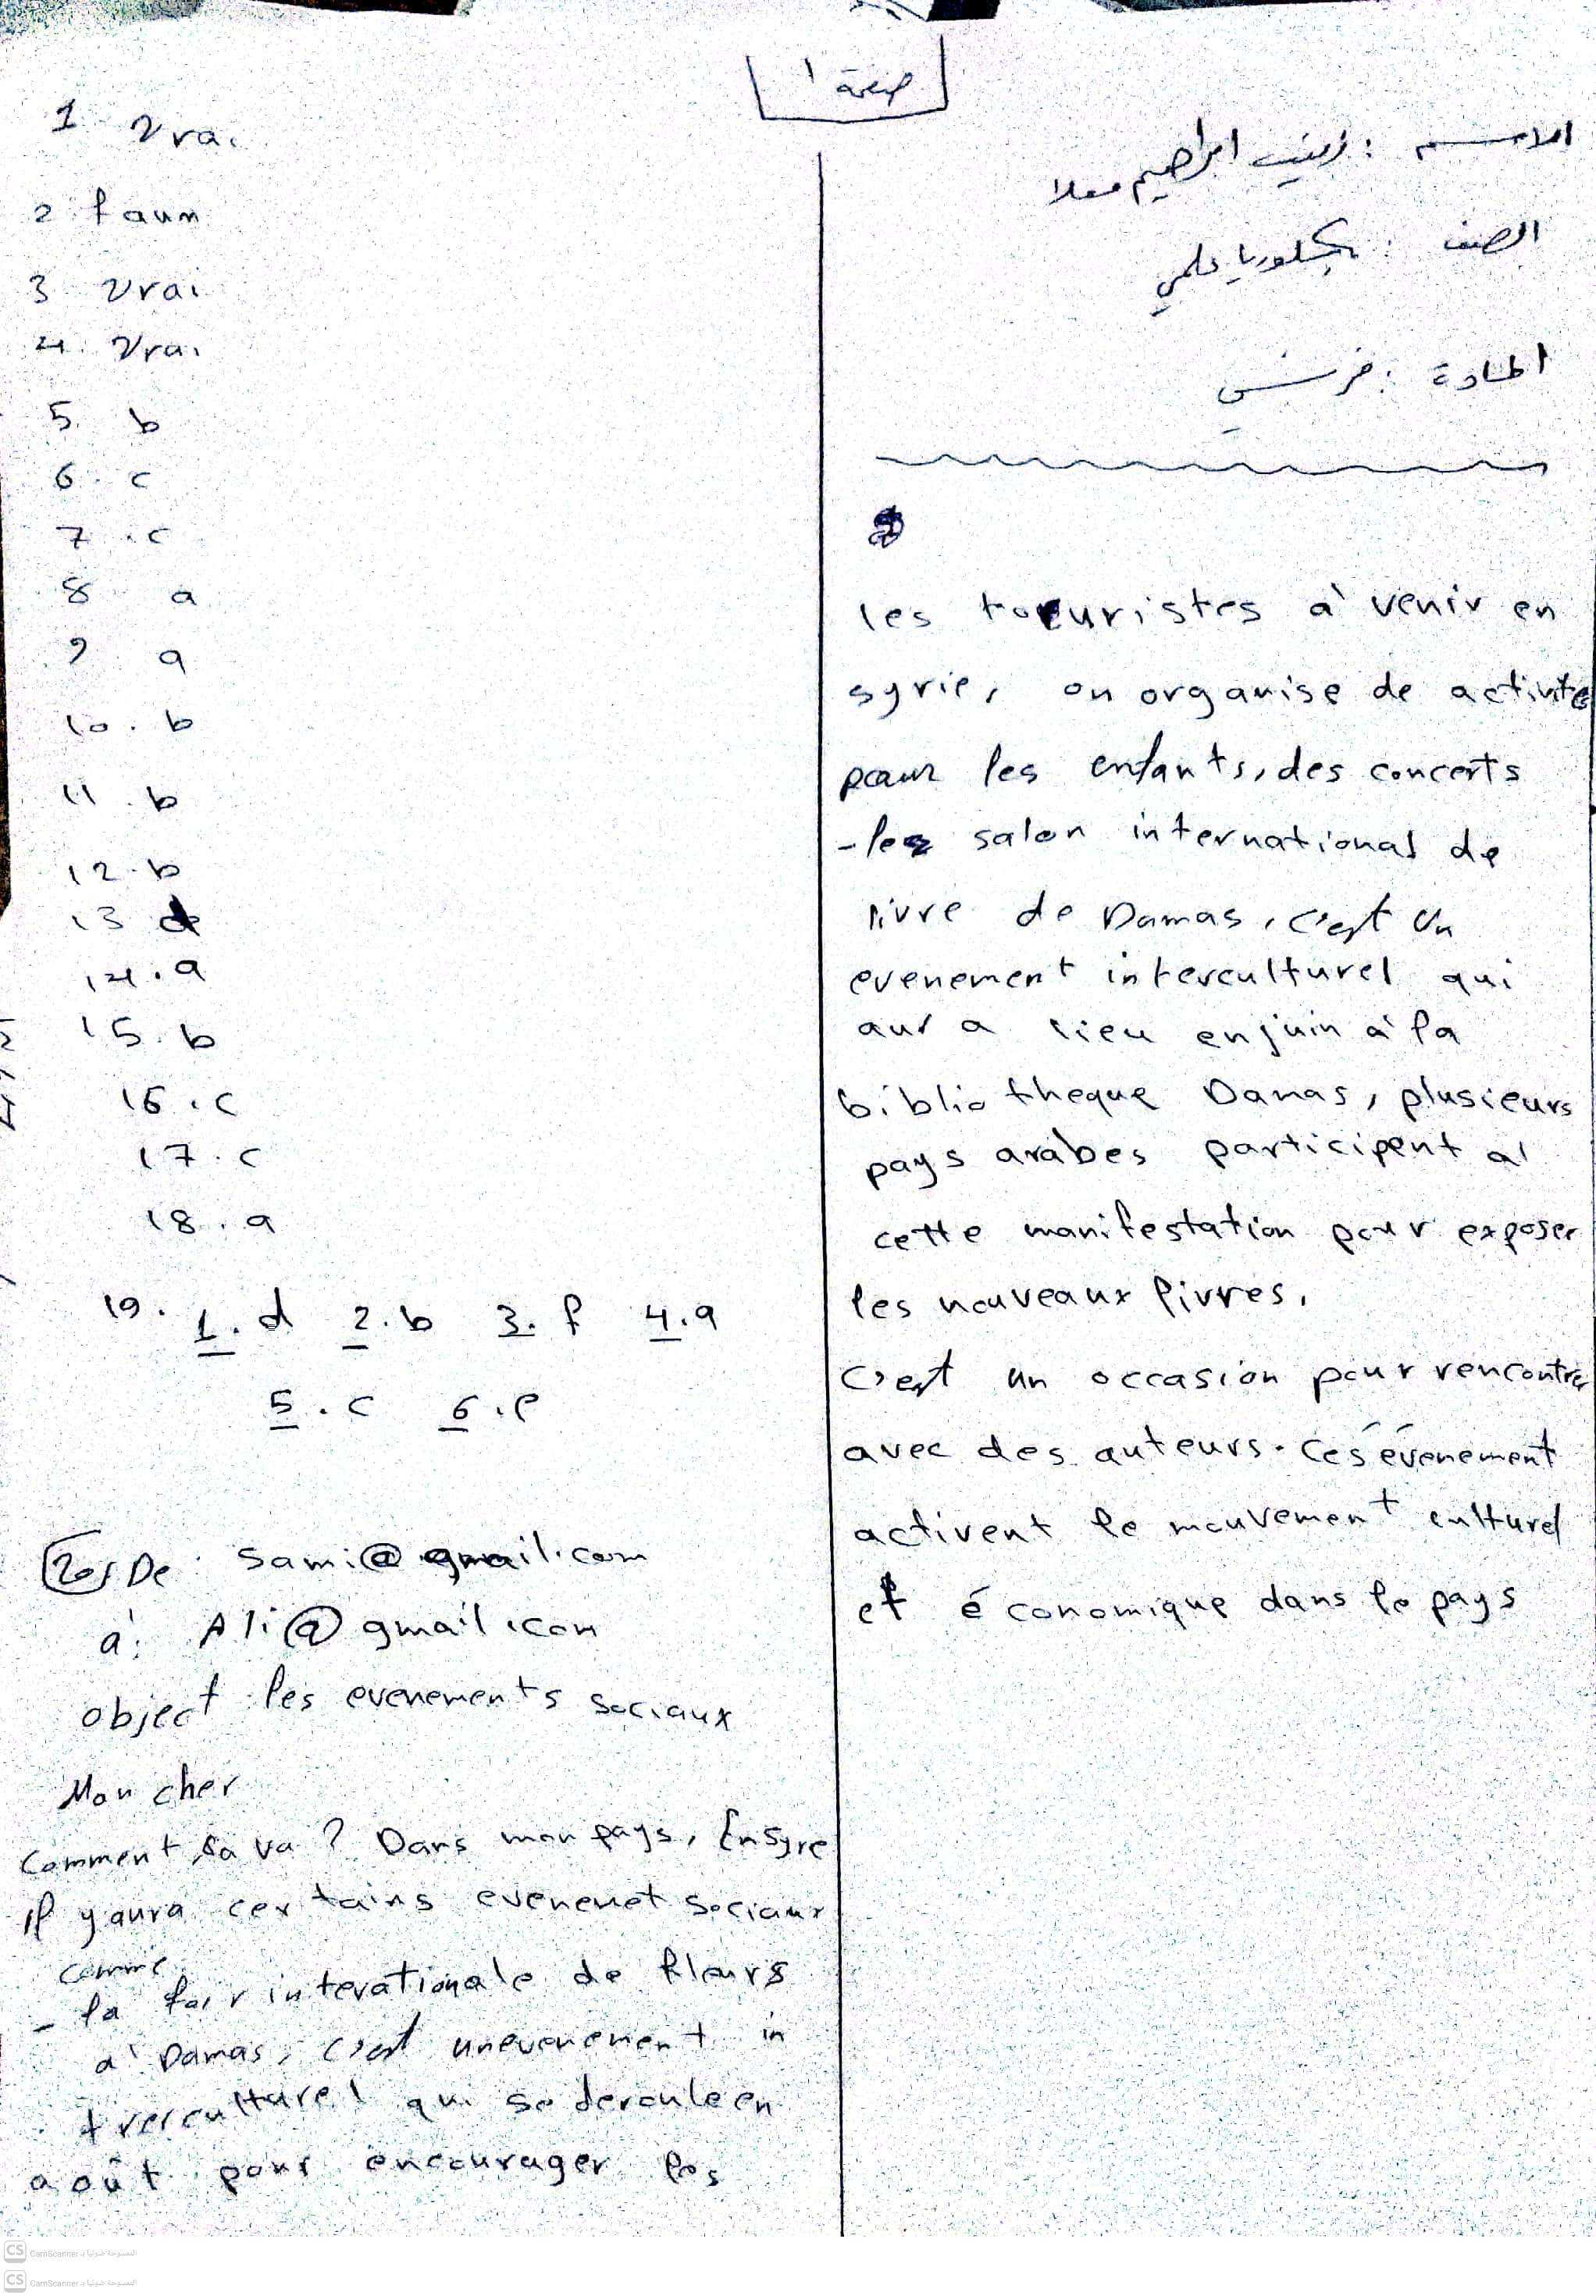 صفحة ١
الاسم : زينب ابراهيم معلا
الصف : بكلوريا علمي
المادة : فرنسي
1 Vrai
2 faux
3 Vrai
4. Vrai
5. b
6. c
7. c
8 a
9 a
10. b
11. b
12. b
13
14. a
15. b
16. c
17. c
18. a
19. 1. d 2. b 3. f 4. a
5. c 6. e
20) De : sami@gmail.com
à : Ali@gmail.com
object : les evenements sociaux
Mon cher
Comment sa va ? Dans mon pays, En syre
il y aura certains evenenet sociaux
comme
- la foir interationale de fleurs
à Damas, c'est unevenement in
trerculturel qui se deroule en
août pour encourager les
les touristes à venir en
syrie, on organise de activite
pour les enfants, des concerts
- le salon international de
livre de Damas, c'est un
evenement interculturel qui
aura lieu en juin à la
bibliotheque Damas, plusieurs
pays arabes participent à
cette manifestation pour exposer
les nouveaux livres,
C'est un occasion pour rencontre
avec des auteurs. Ces événement
activent le mouvement culturel
et économique dans le pays
CS CamScanner الممسوحة ضوئيا بـ
CS CamScanner الممسوحة ضوئيا بـ